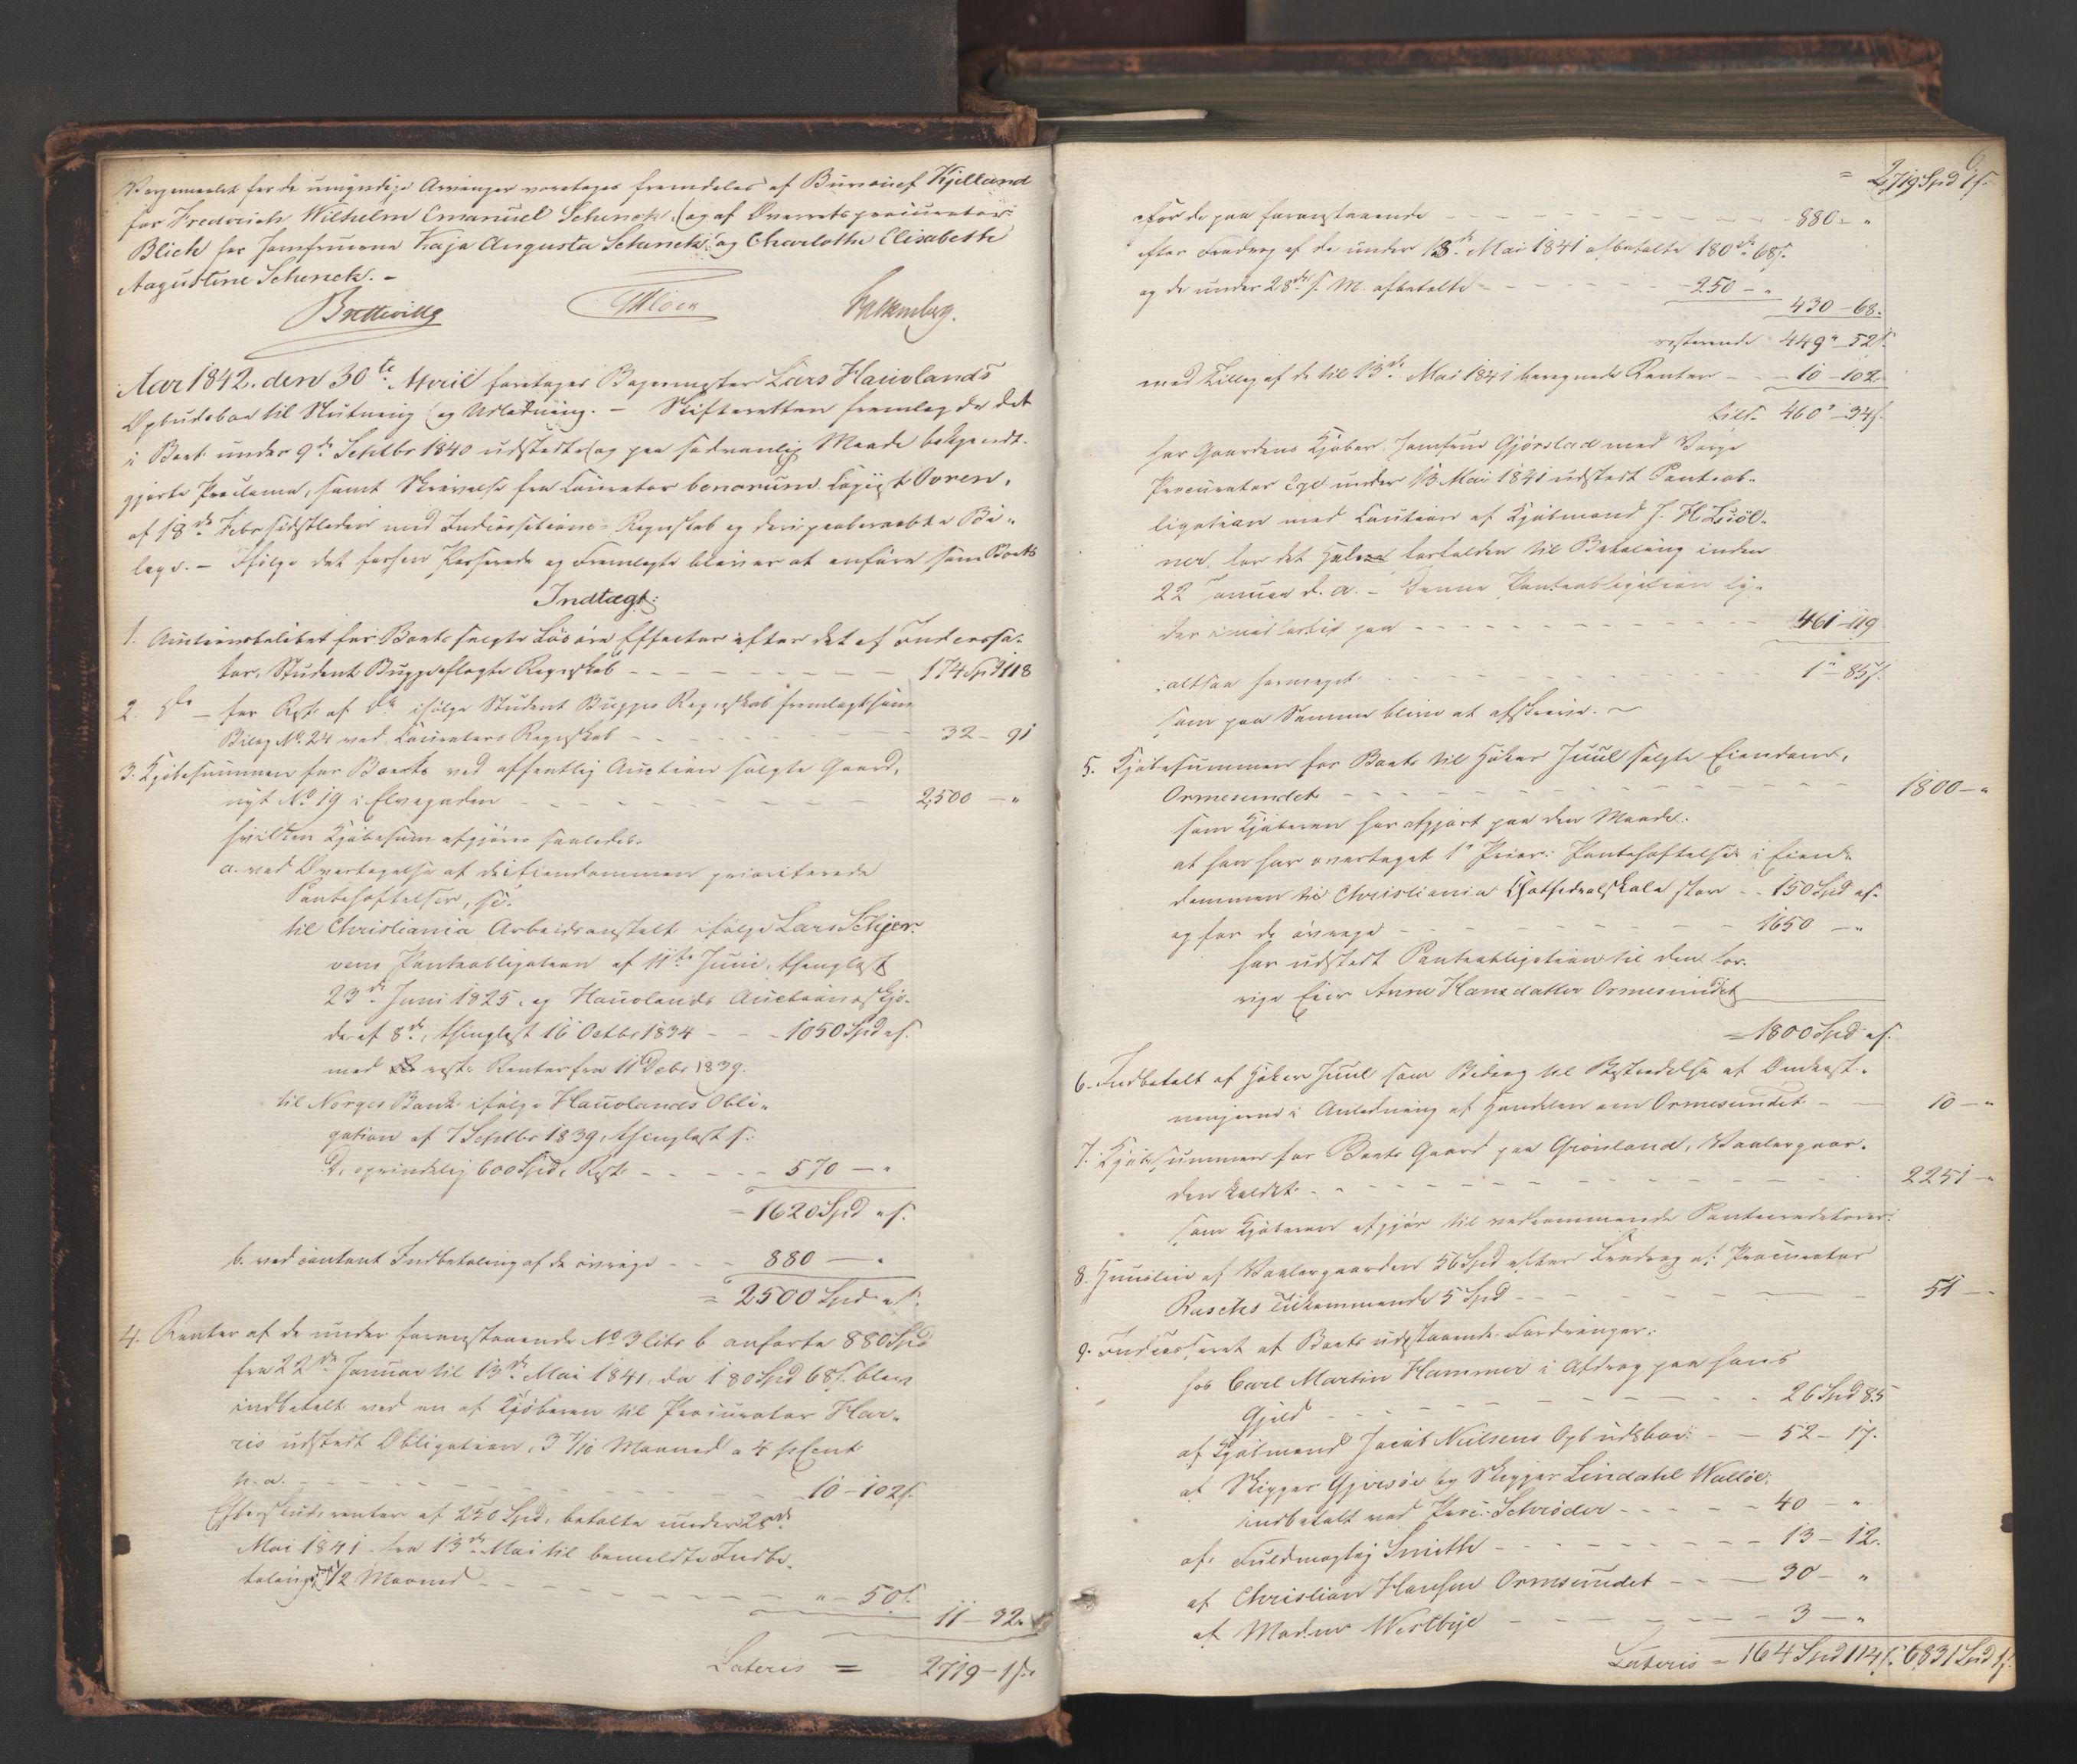 Værgemaalet for de umyndige Arvinger varetages fremdeles af Bureauchef Kjelland
for Frederich Wilhelm Emanuel Schenck, og af Overretsprocurator
Blich for Jomfruerne Kaja Augusta Schenck og Charlotte Elisabeth
Augustine Schenck. –
Aar 1842, den 30te April foretages Bagermester Lars Hauvlands
Opbudsboe til Slutning og Udlodning. – Skifteretten fremlagde det
i Boet under 9de Septbr 1840 udstedte og paa sædvanlig Maade bekjendt-
gjorte Proclama, samt Skrivelse fra Curator bonorum
af 18de Febr sidstleden med Incassations-Regnskab og deri paaberaabte Bi-
lage. – Ifølge det forhen Passerede og Fremlagte bliver at anføre som Boets
Indtægt:
1. Auctionsbeløbet for Boets solgte Løsøre Effecter efter det af Incassa-
tor, Student Bugge aflagte Regnskab 174 Spd 118
2. Do – for Rest af do ifølge Student Bugges Regnskab fremlagt som
Bilag No 24 ved Curators Regnskab 32 – 91
3. Kjøbesummen for Boets ved offentlig Auction solgte Gaard,
nyt No 19 i Elvegaden 2,500 – "
hvilken Kjøbesum afgjøres saaledes:
a. ved Overtagelse af de i Eiendommen prioriterede
Pantehæftelser,
til Christiania Arbeidsanstalt ifølge Lars Schjer-
vens Panteobligation af 11te Juni, thinglæst
23de Juni 1825, og Hauvlands Auctionsskjø-
de af 8de, thinglæst 16 Octbr 1834 – 1050 Spd " s.
med rest. Renter fra 11 Decbr 1839.
til Norges Bank ifølge Hauvlands Obli-
gation af 7 Septbr 1839, thinglæst s.
D., oprindelig 600 Spd, Rest 570 – "
= 1620 Spd " s.
b. ved contant Indbetaling af de øvrige 880 – "
= 2500 Spd " s.
4. Renter af de under foranstaaende No 3 litr b anførte 880 Spd
fra 22de Januar til 13de Mai 1841, da 180 Spd 68 s. blev
indbetalt ved en af Kjøberen til Procurator Har-
ris udstedt Obligation, 3 7/10 Maaned a 4 pCent
p. a. 10 – 102 s.
Efterskudsrenter af 250 Spd, betalte under 28de
Mai 1841 fra 13de Mai til bemeldte Indbe-
taling, 1/2 Maaned " – 50 s.
11 – 32
Lateris = 2719 – 1 s.
6
= 2,719 Spd 1 s.
For de paa foranstaaende 880 – "
efter Fradrag af de under 13de Mai 1841 afbetalte 180 – 68 s.
og de under 28de s. M. afbetalte 250 – "
430 – 68.
resterende 449 – 52 s.
med Tillæg af de til 13de Mai 1841 beregnede Renter 10 – 102
tils. 460 – 34 s.
har Gaardens Kjøber Jomfrue Gjørstad med Værge
Procurator under 13 Mai 1841 udstedt Panteob-
ligation med Caution af Kjøbmand J. H.
ner, for det Hele forfalden til Betaling inden
22 Januar d. a. – Denne Panteobligation ly-
der imidlertid paa 461 – 119
altsaa formeget 1 – 85 s.
som paa Samme blive at afskrive. –
5. Kjøbesummen for Boets til Høker Juul solgte Eiendom,
Ormesundet 1800 – "
som Kjøberen har afgjort paa den Maade:
at han har overtaget 1 Prior: Pantehæftelse i Eien-
dommen til Christiania Cathedralskole stor – 150 Spd " s.
og for de øvrige 1650 – "
har udstedt Panteobligation til den for-
rige Eier Anne Hansdatter Ormesundet
= 1800 Spd " s.
6. Indbetalt af Høker Juul som Bidrag til Bestridelse af Omkost-
ningerne i Anledning af Handelen om Ormesundet 10 – "
7. Kjøbesummen for Boets Gaard paa Grønland, Vaalergaar-
den kaldet 2251 – "
som Kjøberen afgjør til vedkommende Panteecreditorer.
8. Huusleie af Vaalergaarden 56 Spd efter Fradrag af Procurator
Raschs Tilkommende 5 Spd 51 – "
9. Incasseret af Boets udestaaende Fordringer:
hos Carl Martin Hammer i Afdrag paa hans
Gjeld 26 Spd 85
af Kjøbmand Jacob Nielsens Opbudsboe 52 – 17.
af Skipper og Skipper Lindahl
indbetalt ved Proc. Schrøder 40 – "
af Fuldmægtig Smith 13 – 12.
af Christian Hansen Ormsundet 30 – "
af Madme Westbye 3 – "
Lateris = 164 Spd 114 s. 6831 Spd 1 s.